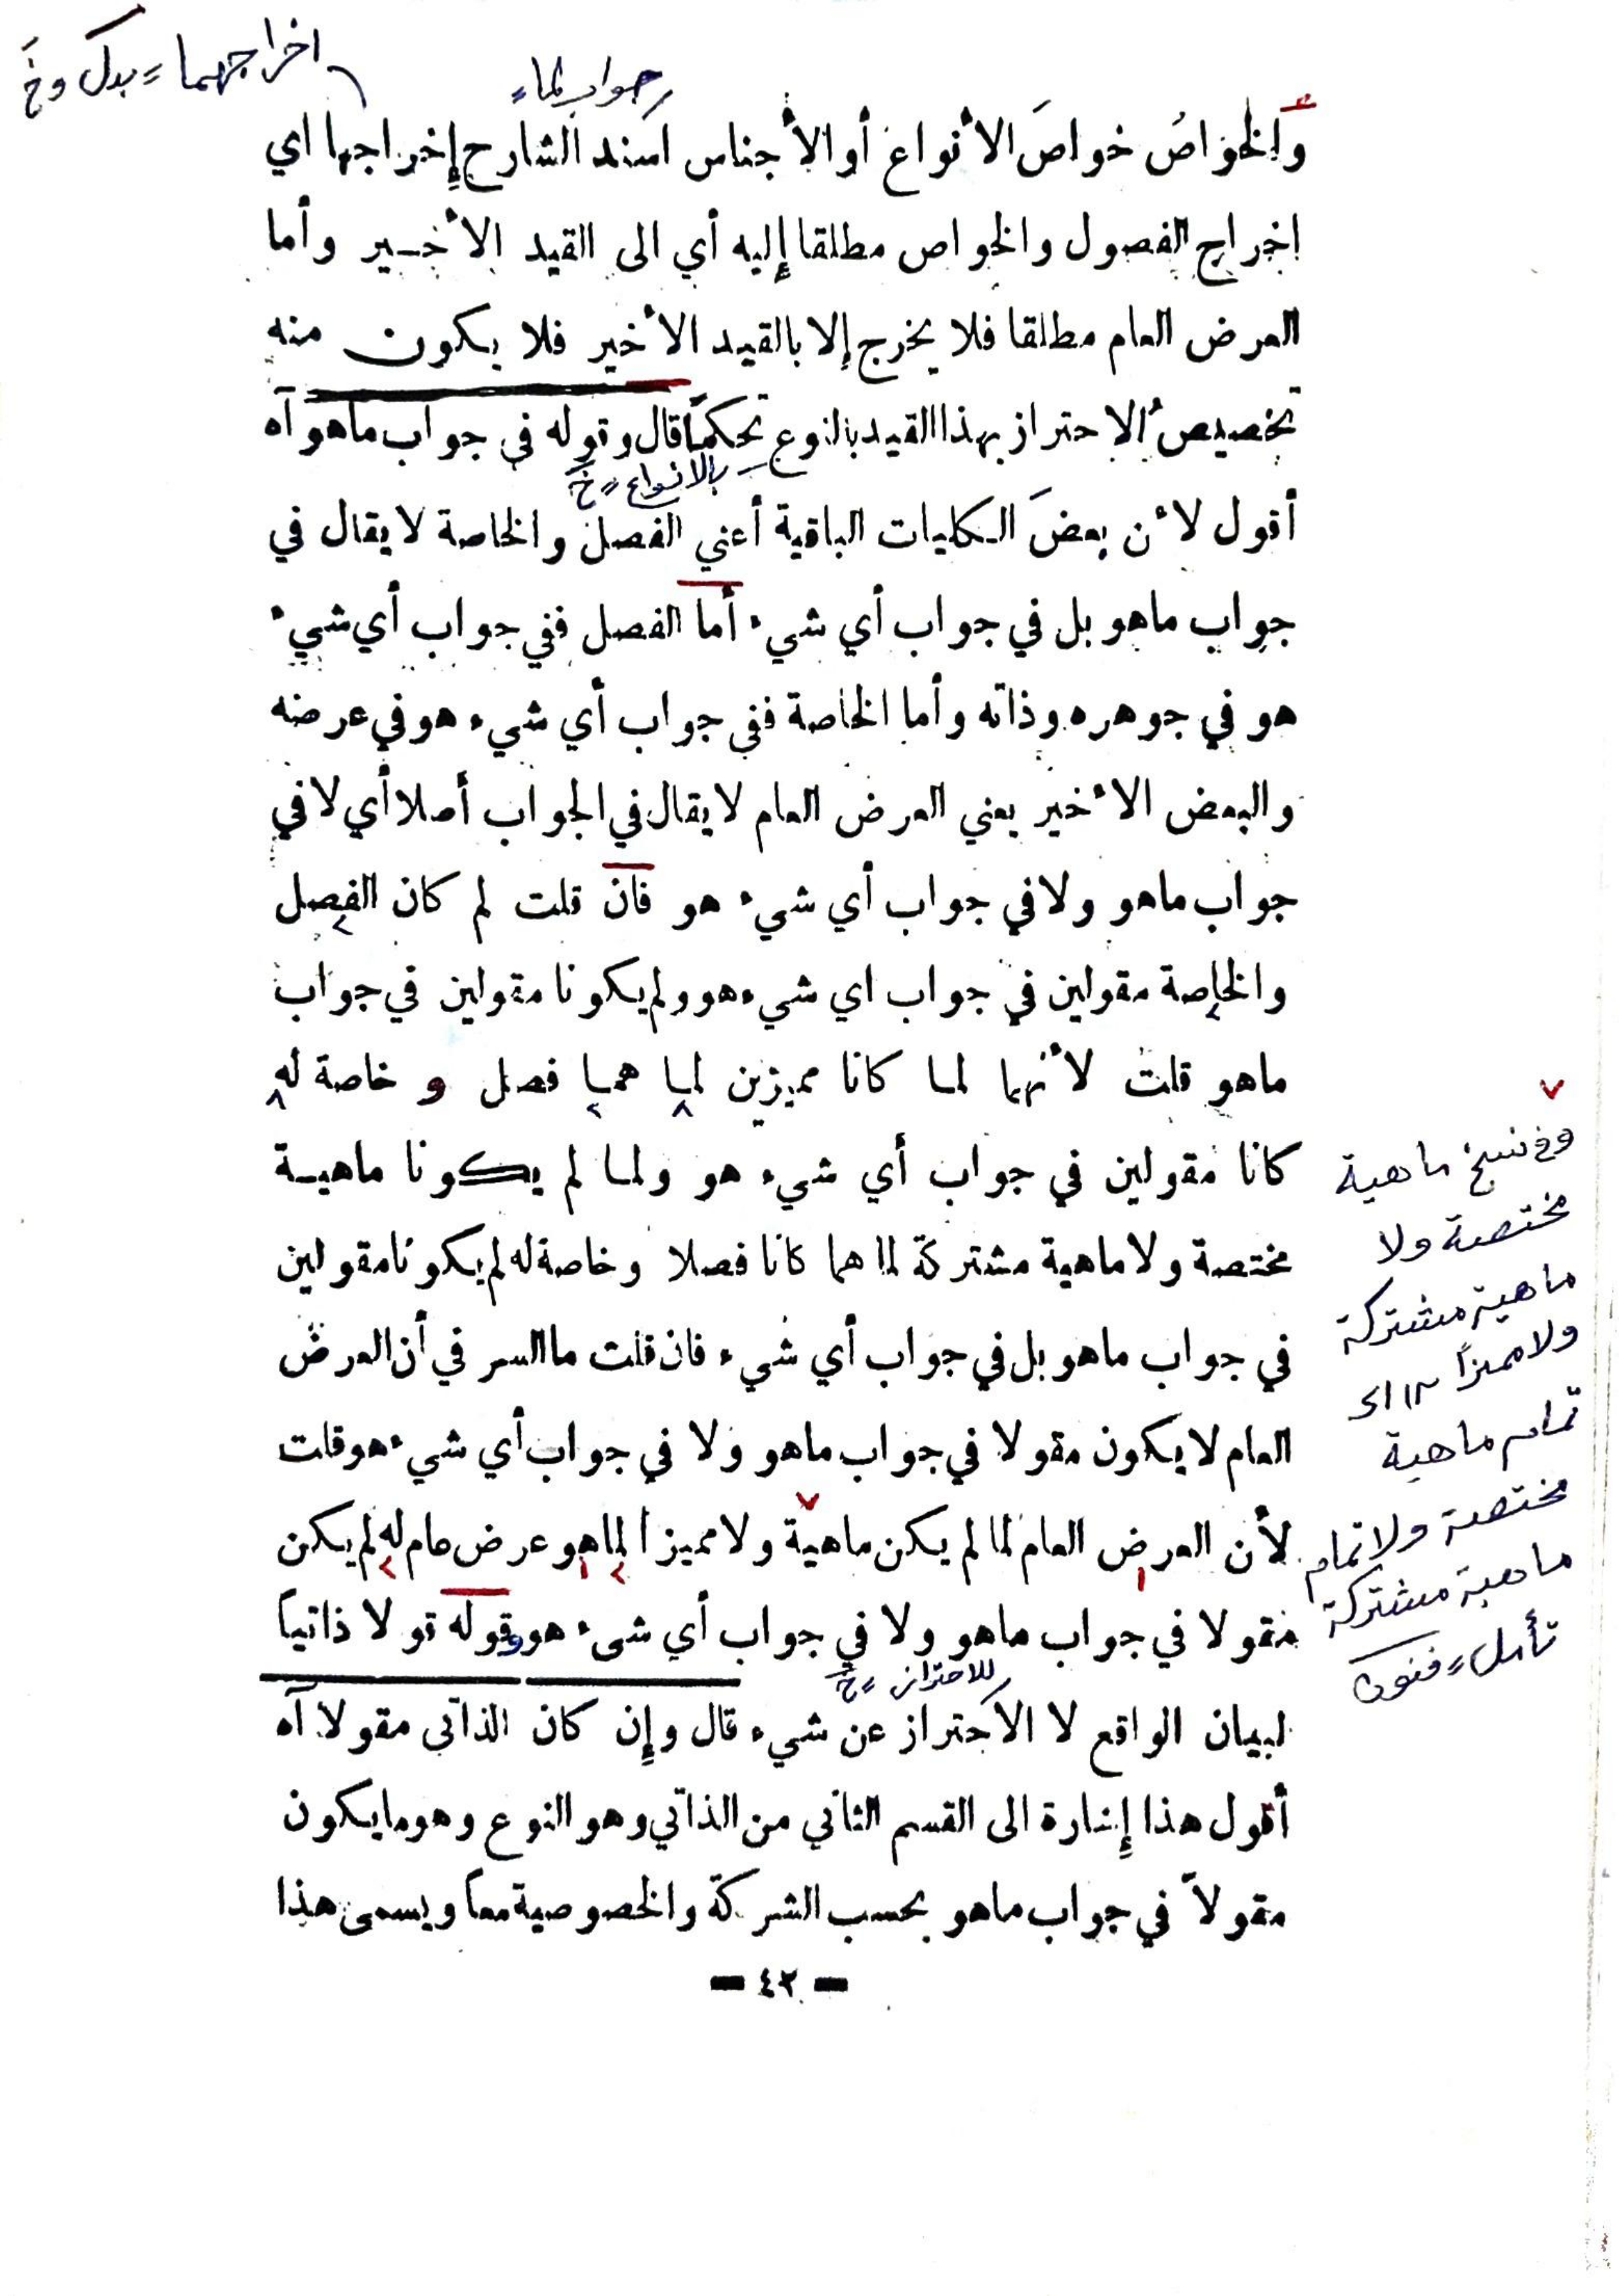 اخراجهما = بدل وخ
جواب لما =
والخواصُ خواصَ الأنواع أو الأجناس اسند الشارح إِخراجها اي
اخراج الفصول والخواص مطلقا إِليه أي الى القيد الأخير وأما
العرض العام مطلقا فلا يخرج إلا بالقيد الأخير فلا يكون منه
تخصيصُ الاحتراز بهذا القيد بالنوع تحكماً قال وقوله في جواب ماهو آه
بالانواع = خ
أقول لأن بعضَ الكليات الباقية أعني الفصل والخاصة لا يقال في
جواب ماهو بل في جواب أي شيء أما الفصل ففي جواب أي شيء
هو في جوهره وذاته وأما الخاصة ففي جواب أي شيء هو في عرضه
والبعض الأخير يعني العرض العام لا يقال في الجواب أصلا أي لا في
جواب ماهو ولا في جواب أي شيء هو فان قلت لم كان الفصل
والخاصة مقولين في جواب اي شيء هو ولم يكونا مقولين في جواب
ماهو قلت لأنهما لما كانا مميزين لما هما فصل و خاصة له
كانا مقولين في جواب أي شيء هو ولما لم يكونا ماهية
مختصة ولا ماهية مشتركة لما هما كانا فصلا وخاصة له لم يكونا مقولين
في جواب ماهو بل في جواب أي شيء فان قلت ما السر في أن العرض
العام لا يكون مقولا في جواب ماهو ولا في جواب أي شيء هو قلت
لأن العرض العام لما لم يكن ماهية ولا مميزا لما هو عرض عام له لم يكن
مقولا في جواب ماهو ولا في جواب أي شىء هو وقوله قولا ذاتياً
للاحتراز = خ
لبيان الواقع لا الاحتراز عن شيء قال وإِن كان الذاتي مقولا آه
أقول هذا إِشارة الى القسم الثاني من الذاتي وهو النوع وهو ما يكون
مقولاً في جواب ماهو بحسب الشركة والخصوصية معاً ويسمى هذا
— ٤٢ —
وفي نسخ ماهية
مختصة ولا
ماهية مشتركة
ولا مميزاً
تمام ماهية
مختصة ولا تمام
ماهية مشتركة
تأمل =